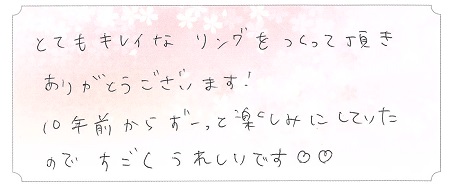 とてもキレイな リングを つくって頂き
ありがとうございます!
10年前から ずーっと楽しみにしていた
ので すごく うれしいです♡♡